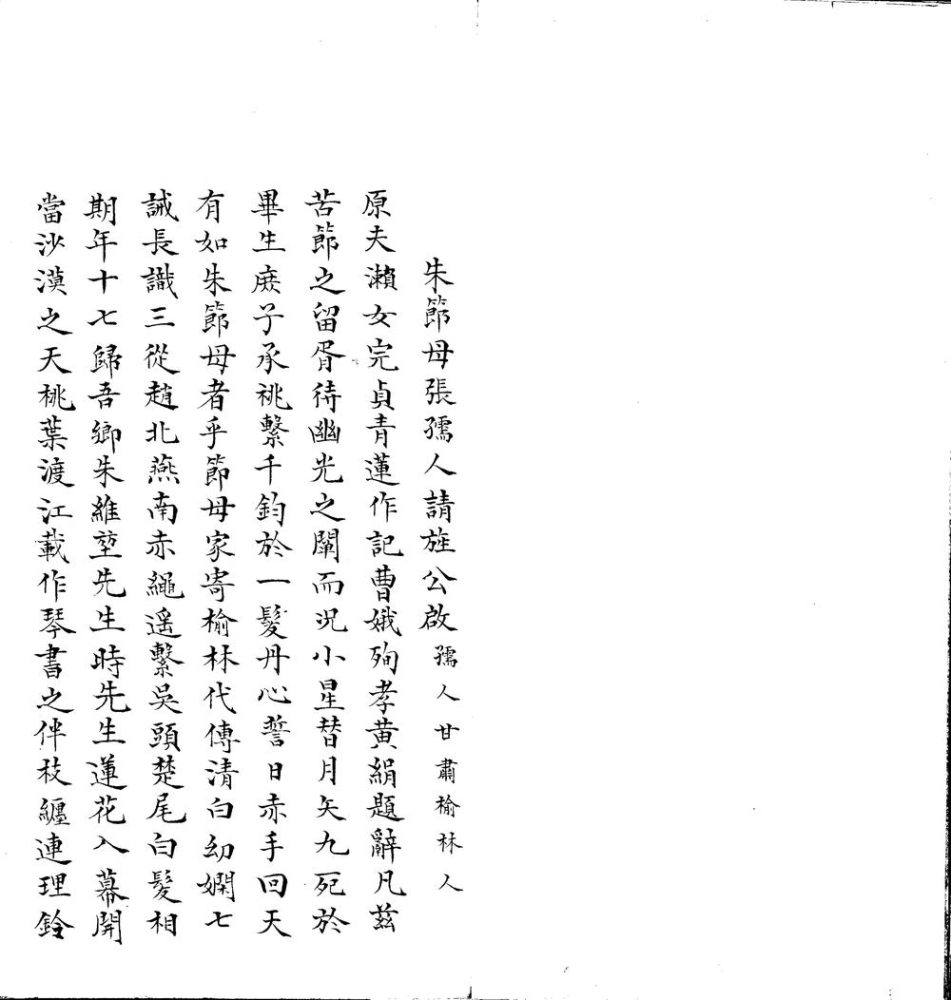 朱節母張孺人請旌公啟 孺人甘肅榆林人
原夫瀨女完貞青蓮作記曹娥殉孝黄絹題辭凡茲
苦節之留胥待幽光之闡而況小星替月矢九死於
畢生庶子承祧繫千鈞於一髮丹心誓日赤手回天
有如朱節母者乎節母家寄榆林代傳清白幼嫻七
誡長識三從趙北燕南赤繩遥繫吳頭楚尾白髮相
期年十七歸吾鄉朱維堃先生時先生蓮花入幕開
當沙漠之天桃葉渡江載作琴書之伴枝纏連理鈴